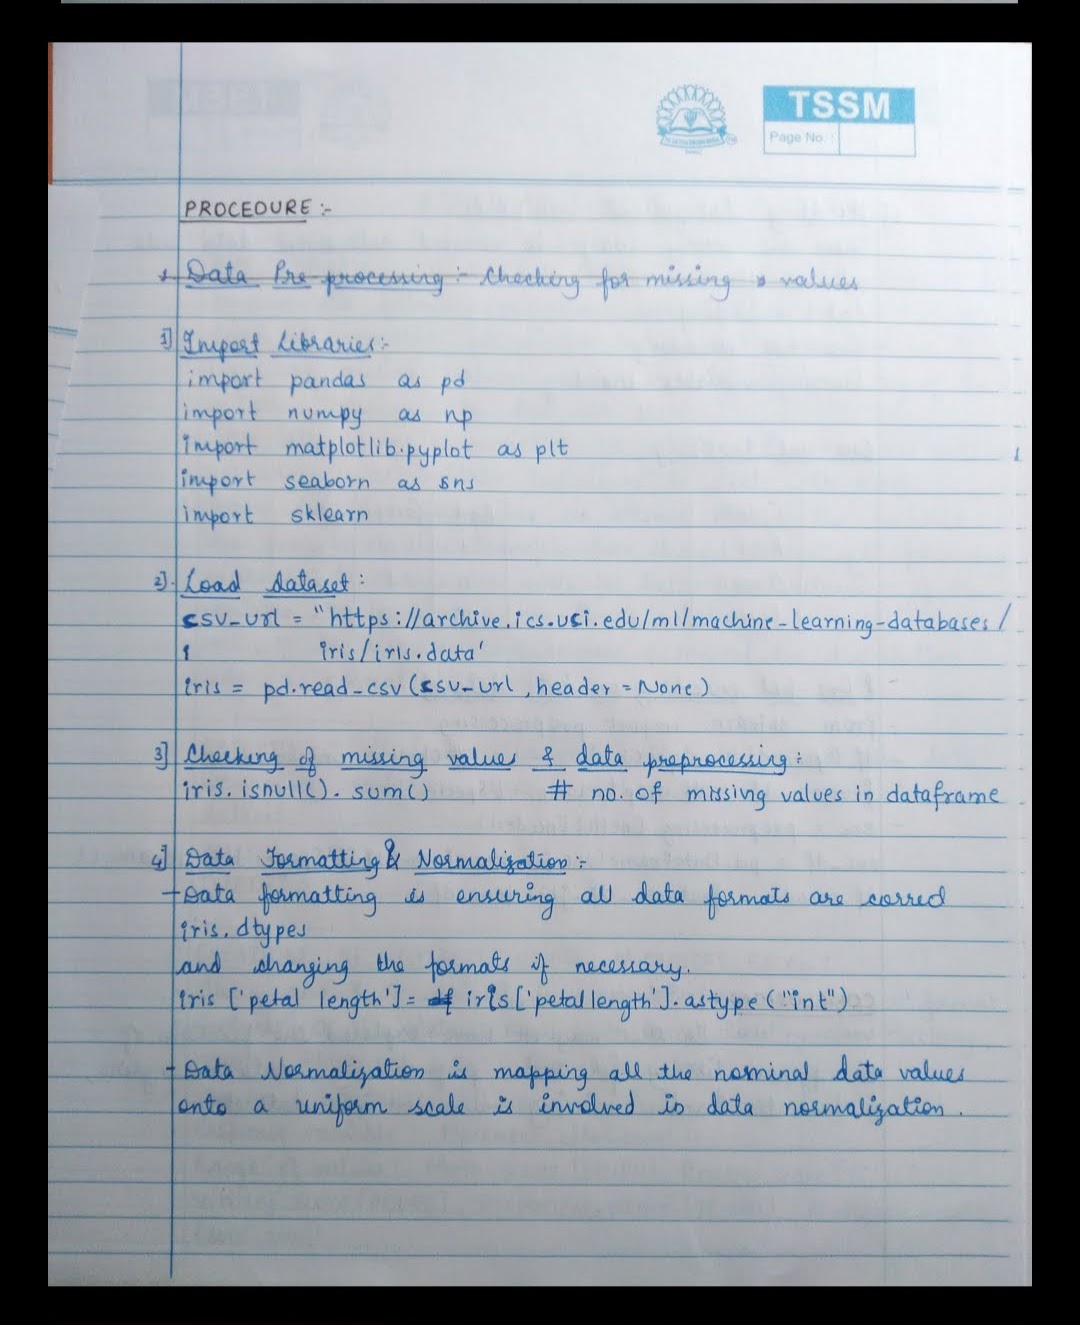 TSSM
Page No. :
PROCEDURE :-
Data Pre-processing :- Checking for missing values
1] Import Libraries:-
import pandas as pd
import numpy as np
import matplotlib.pyplot as plt
import seaborn as sns
import sklearn
2]. Load dataset :
csv_url = "https://archive.ics.uci.edu/ml/machine-learning-databases/
iris/iris.data'
iris = pd.read_csv(csv_url, header = None)
3] Checking of missing values & data preprocessing :
iris.isnull().sum() # no. of missing values in dataframe
4] Data Formatting & Normalization :-
- Data formatting is ensuring all data formats are corred
iris.dtypes
and changing the formats if necessary.
iris ['petal length'] = df iris['petal length'].astype ("int")
- Data Normalization is mapping all the nominal data values
onto a uniform scale is involved in data normalization.